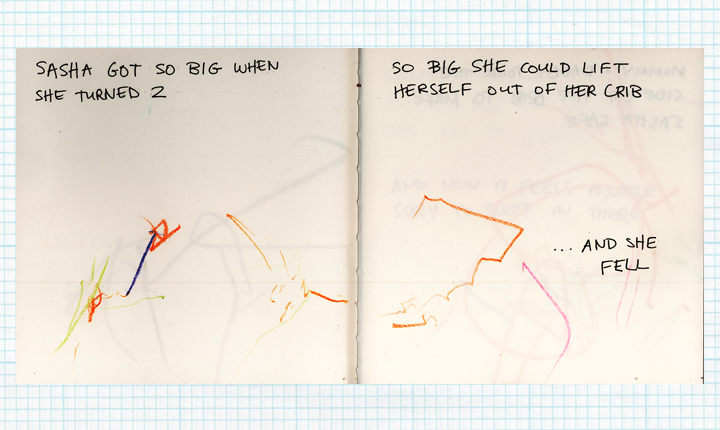 SASHA GOT SO BIG WHEN
SHE TURNED 2
SO BIG SHE COULD LIFT
HERSELF OUT OF HER CRIB
... AND SHE
FELL